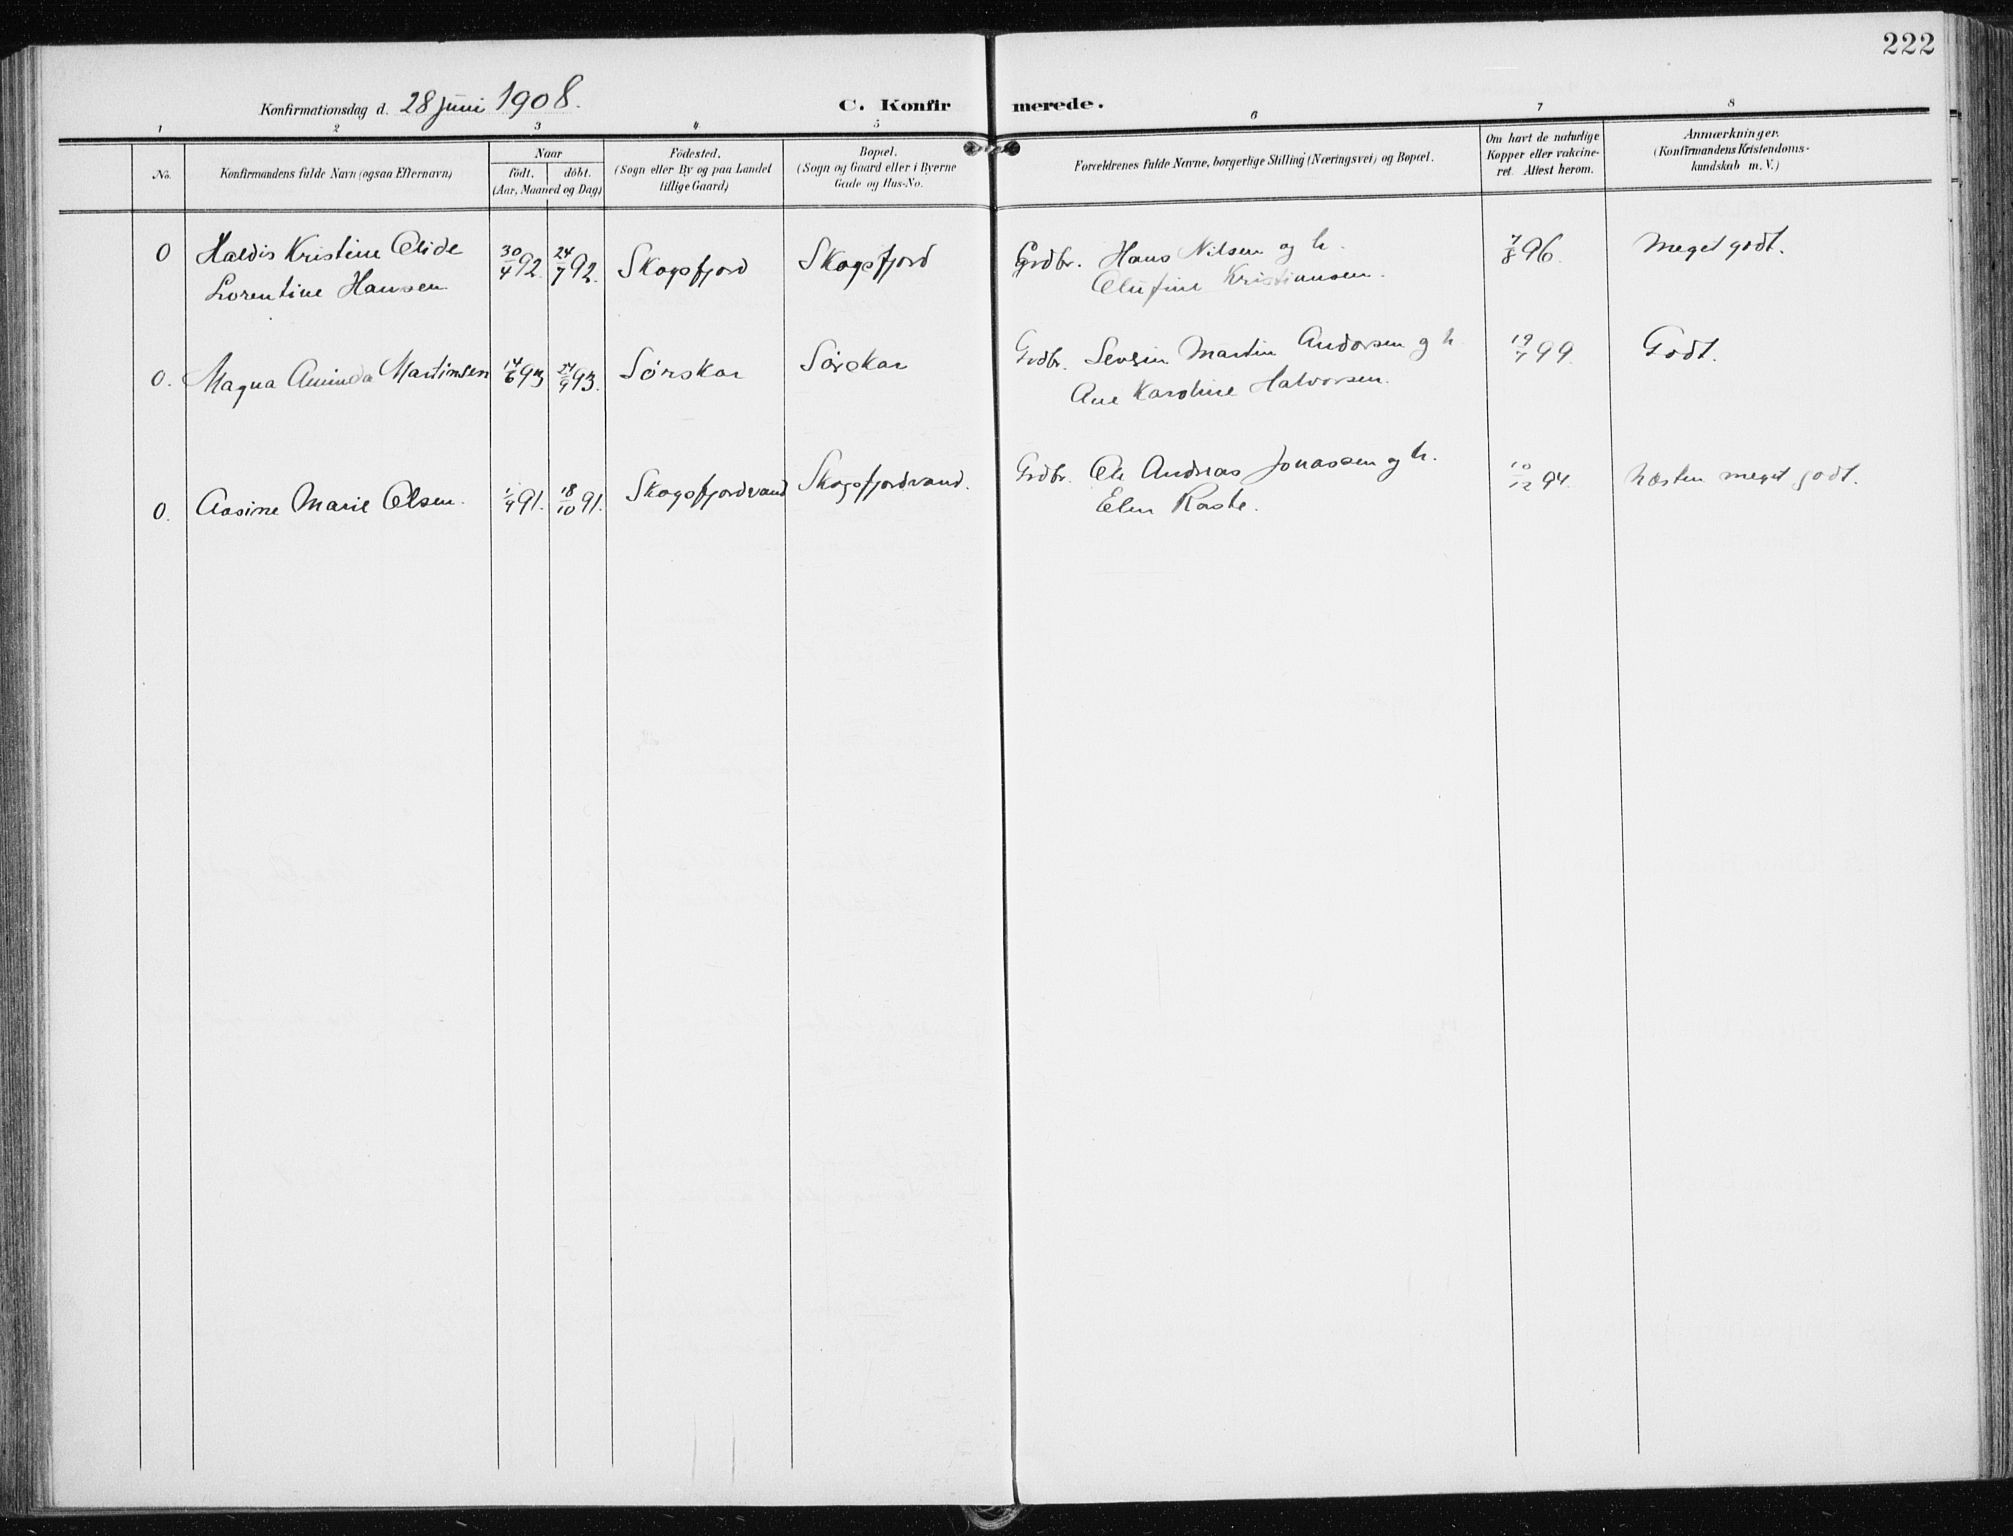 222
Konfirmationsdag d. 28 juni 1908.
C. Konfirmerede.
1 2 3 4 5 6 7 8
No.
Konfirmandens fulde Navn (ogsaa Efternavn)
Naar
født. døbt.
(Aar, Maaned og Dag)
Fødested.
(Sogn eller By og paa Landet
tillige Gaard)
Bopæl.
(Sogn og Gaard eller i Byerne
Gade og Hus-No.
Forældrenes fulde Navne, borgerlige Stilling (Næringsvei) og Bopæl.
Om havt de naturlige
Kopper eller vakcine-
ret. Attest herom.
Anmærkninger.
(Konfirmandens Kristendoms-
kundskab m. V.)
0 Haldis Kristine Olide 30/4 92. 24/7 92. Skogsfjord Skogsfjord Grdbr. Hans Nilsen og h. 7/8 96. Meget godt.
Lorentine Hansen Olufine Kristiansen.
0. Magna Aminda Martinsen 14/6 93 24/9 93. Sørskar Sørskar Grdbr. Sevrin Martin Andorsen og h. 19/7 99. Godt.
Ane Karoline Halvorsen.
0. Aasine Marie Olsen. 1/9 91. 18/10 91. Skogsfjordvand Skogsfjordvand. Grdbr. Ole Andreas Jonassen og h. 10/12 94. Næsten meget godt.
Elen Raste.